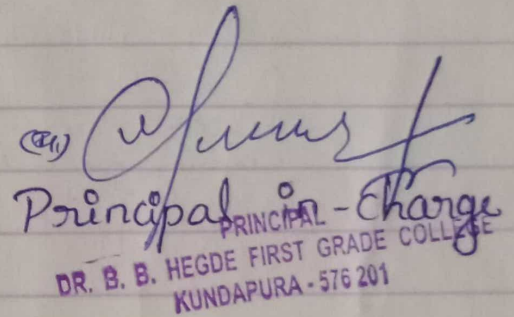 Principal in - Charge
PRINCIPAL
DR. B. B. HEGDE FIRST GRADE COLLEGE
KUNDAPURA - 576 201